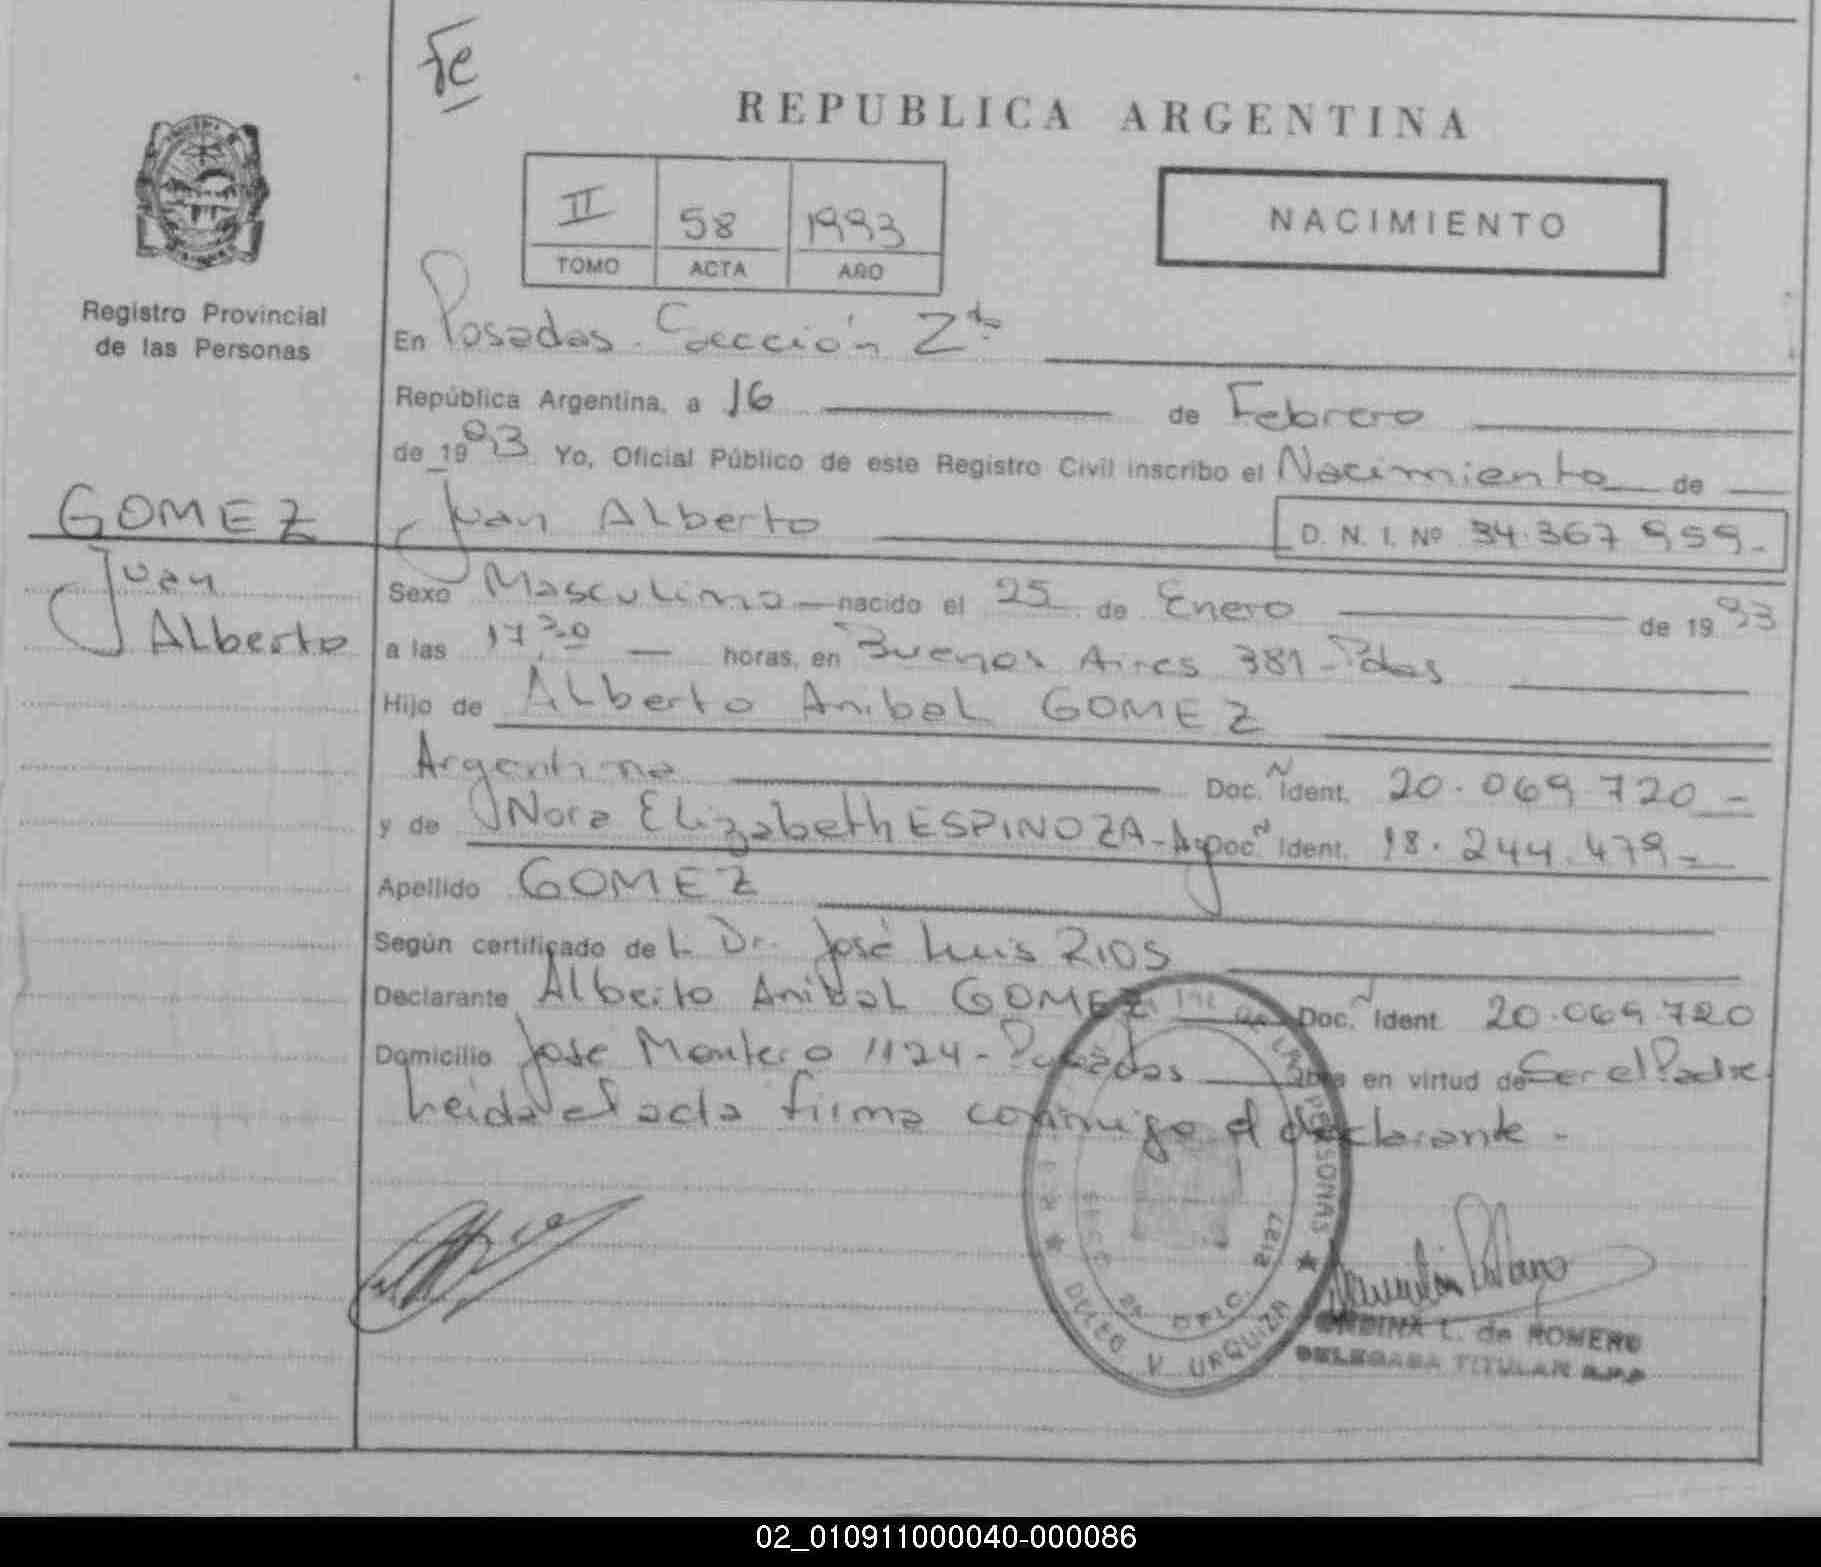 Fe
REPUBLICA ARGENTINA
II 58 1993
TOMO ACTA AÑO
NACIMIENTO
Registro Provincial
de las Personas
En Posadas. Sección 2da
República Argentina, a 16 de Febrero
de 1993 Yo, Oficial Público de este Registro Civil inscribo el Nacimiento de
GOMEZ
Juan Alberto D. N. I. Nº 34.367 959.-
Juan
Alberto
Sexo Masculino nacido el 25 de Enero de 1993
a las 17,30 horas, en Buenos Aires 381-Pdas
Hijo de Alberto Anibal GOMEZ
Argentino Doc. Ident. 20.069.720-
y de Nora Elizabeth ESPINOZA-Arg Doc. Ident. 18.244.479-
Apellido GOMEZ
Según certificado del Dr. José Luis RIOS
Declarante Alberto Anibal GOMEZ Doc. Ident 20.069.720
Domicilio Jose Montero 1124-Posadas Obra en virtud de Ser el Padre
Leida el acta firma conmigo el declarante.-
LAS PERSONAS
SECC 2ª OFIC. 2127
DPTO V URQUIZA
L. de ROMERO
DELEGADA TITULAR R.P.P
02_010911000040-000086